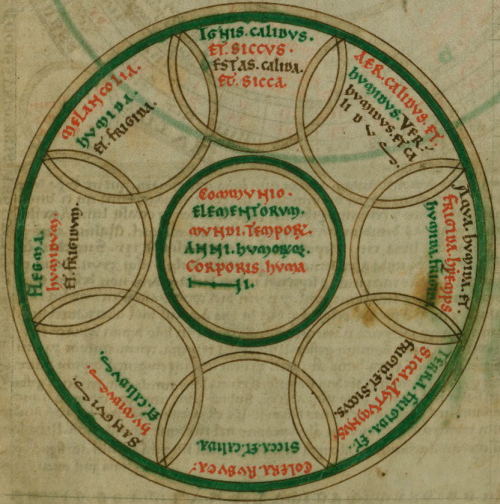 IGNIS. CALIDUS.
ET. SICCUS.
ESTAS. CALIDA.
ET. SICCA.
AER. CALIDUS. ET.
HUMIDUS. VER.
HUMIDUS. ET CA
LI D
AQUA. HUMIDA. ET.
FRIGIDA. HYEMPS
HUMIDA. FRIGIDA
TERRA. FRIGIDA. ET.
SICCA. AUTUMNUS
FRIGID. ET. SICUS.
COLERA. RUBUEA:
SICCA. ET. CALIDA.
SANGUIS
HUMIDUS
ET. CALIDUS.
FLEGMA.
HUMIDUM
ET. FRIGIDUM.
MELANCOLIA.
HUMIDA.
ET. FRIGIDA.
COMMUNIO.
ELEMENTORUM.
MUNDI. TEMPOR.
ANNI. HUMORUM.
CORPORIS HUMA
I.